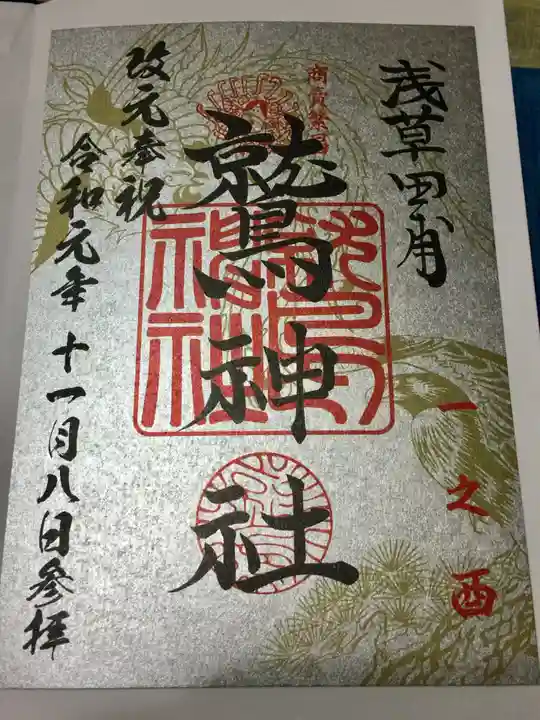 浅草田甫
一之酉
商賣繁昌
鷲神社
改元奉祝
令和元年十一月八日参拝